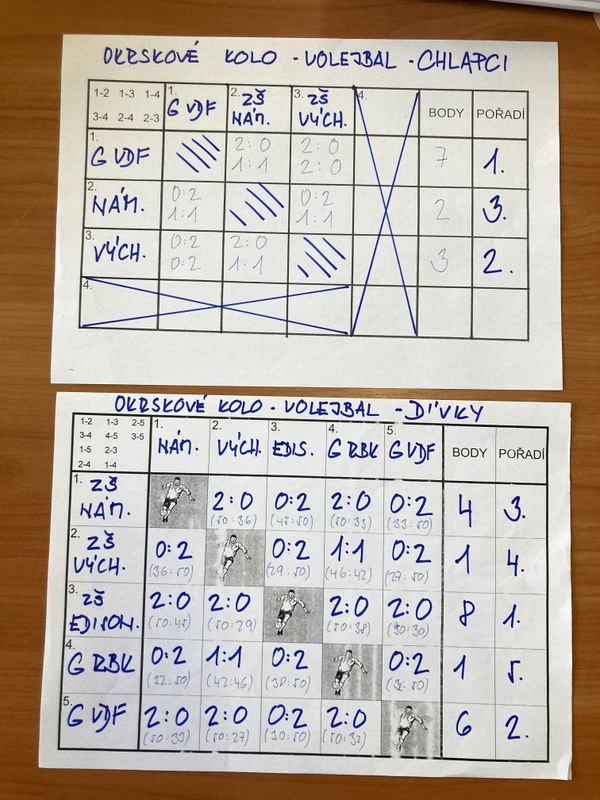 OKRSKOVÉ KOLO - VOLEJBAL - CHLAPCI
1-2 1-3 1-4
3-4 2-4 2-3
1. G VDF
2. ZŠ NÁM.
3. ZŠ VÝCH.
4.
BODY
POŘADÍ
1. G VDF 2:0 2:0 7 1.
1:1 2:0
2. NÁM. 0:2 0:2 2 3.
1:1 1:1
3. VÝCH. 0:2 2:0 3 2.
0:2 1:1
4.
OKRSKOVÉ KOLO - VOLEJBAL - DÍVKY
1-2 1-3 2-5
3-4 4-5 3-5
1-5 2-3
2-4 1-4
1. NÁM.
2. VÝCH.
3. EDIS.
4. G RBK
5. G VDF
BODY
POŘADÍ
1. ZŠ NÁM. 2:0 0:2 2:0 0:2 4 3.
(50:36) (45:50) (50:33) (33:50)
2. ZŠ VÝCH. 0:2 0:2 1:1 0:2 1 4.
(36:50) (29:50) (46:42) (27:50)
3. ZŠ EDISON. 2:0 2:0 2:0 2:0 8 1.
(50:45) (50:29) (50:38) (50:30)
4. G RBK 0:2 1:1 0:2 0:2 1 5.
(32:50) (42:46) (38:50) (32:50)
5. G VDF 2:0 2:0 0:2 2:0 6 2.
(50:33) (50:27) (30:50) (50:32)